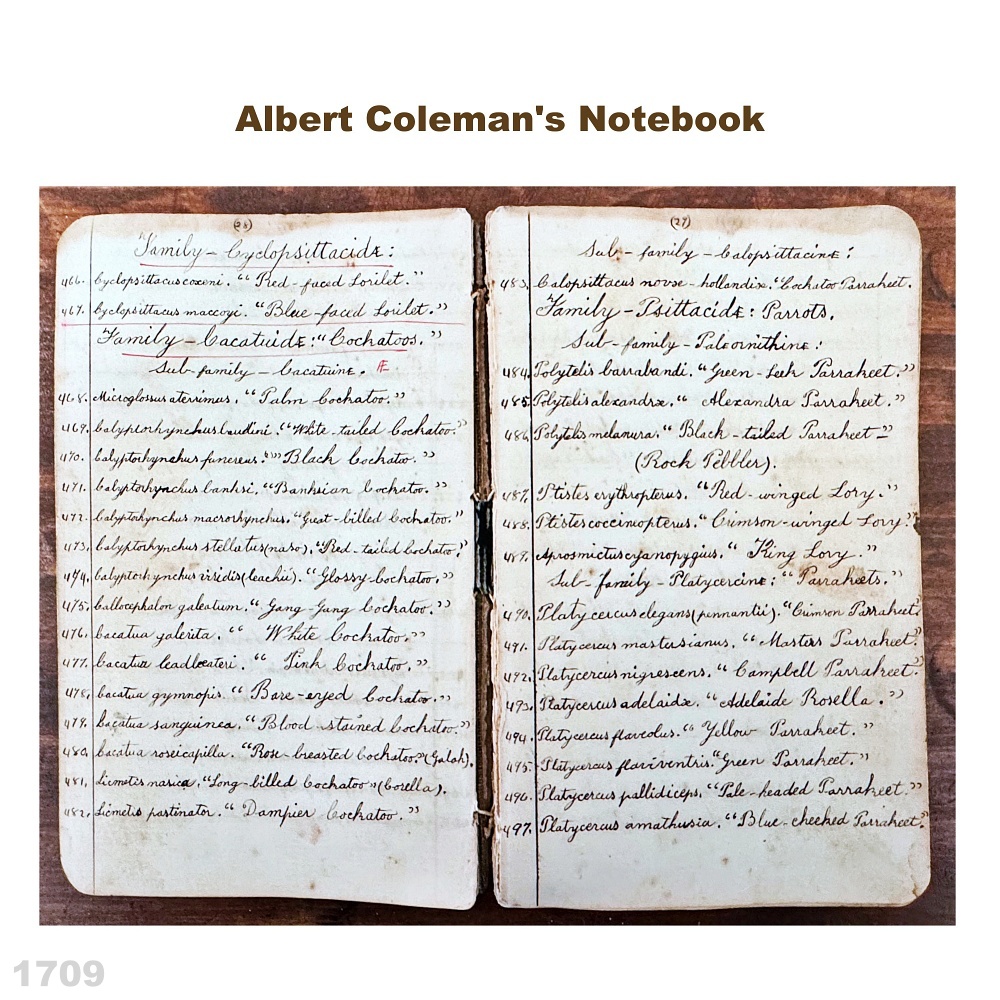 Albert Coleman's Notebook
(26)
Family - Cyclopsittacidæ:
466. Cyclopsittacus coxeni. "Red-faced Lorilet."
467. Cyclopsittacus maccoyi. "Blue-faced Lorilet."
Family - Cacatuidæ: "Cockatoos."
Sub-family - Cacatuinæ. Æ
468. Microglossus aterrimus. "Palm Cockatoo."
469. Calyptorhynchus baudini. "White-tailed Cockatoo."
470. Calyptorhynchus funereus. "Black Cockatoo."
471. Calyptorhynchus banksi. "Banksian Cockatoo."
472. Calyptorhynchus macrorhynchus. "Great-billed Cockatoo."
473. Calyptorhynchus stellatus (naso). "Red-tailed Cockatoo."
474. Calyptorhynchus viridis (leachii). "Glossy-Cockatoo."
475. Callocephalon galeatum. "Gang-Gang Cockatoo."
476. Cacatua galerita. "White Cockatoo."
477. Cacatua leadbeateri. "Pink Cockatoo."
478. Cacatua gymnopis. "Bare-eyed Cockatoo."
479. Cacatua sanguinea. "Blood-stained Cockatoo."
480. Cacatua roseicapilla. "Rose-breasted Cockatoo." (Galah).
481. Licmetis narica. "Long-billed Cockatoo" (Corella).
482. Licmetis pastinator. "Dampier Cockatoo."
(27)
Sub-family - Calopsittacinæ:
483. Calopsittacus novæ-hollandiæ. "Cockatoo Parrakeet.
Family - Psittacidæ: Parrots.
Sub-family - Palæornithinæ:
484. Polytelis barrabandi. "Green-Leek Parrakeet."
485. Polytelis alexandræ. "Alexandra Parrakeet."
486. Polytelis melanura. "Black-tailed Parrakeet"
(Rock Pebbler).
487. Ptistes erythropterus. "Red-winged Lory."
488. Ptistes coccineopterus. "Crimson-winged Lory."
489. Aprosmictus cyanopygius. "King Lory."
Sub-family - Platycercinæ: "Parrakeets."
490. Platycercus elegans (pennantii). "Crimson Parrakeet."
491. Platycercus mastersianus. "Masters Parrakeet."
492. Platycercus nigrescens. "Campbell Parrakeet."
493. Platycercus adelaidæ. "Adelaide Rosella."
494. Platycercus flaveolus. "Yellow Parrakeet."
495. Platycercus flaviventris. "Green Parrakeet."
496. Platycercus pallidiceps. "Pale-headed Parrakeet."
497. Platycercus amathusia. "Blue-cheeked Parrakeet."
1709